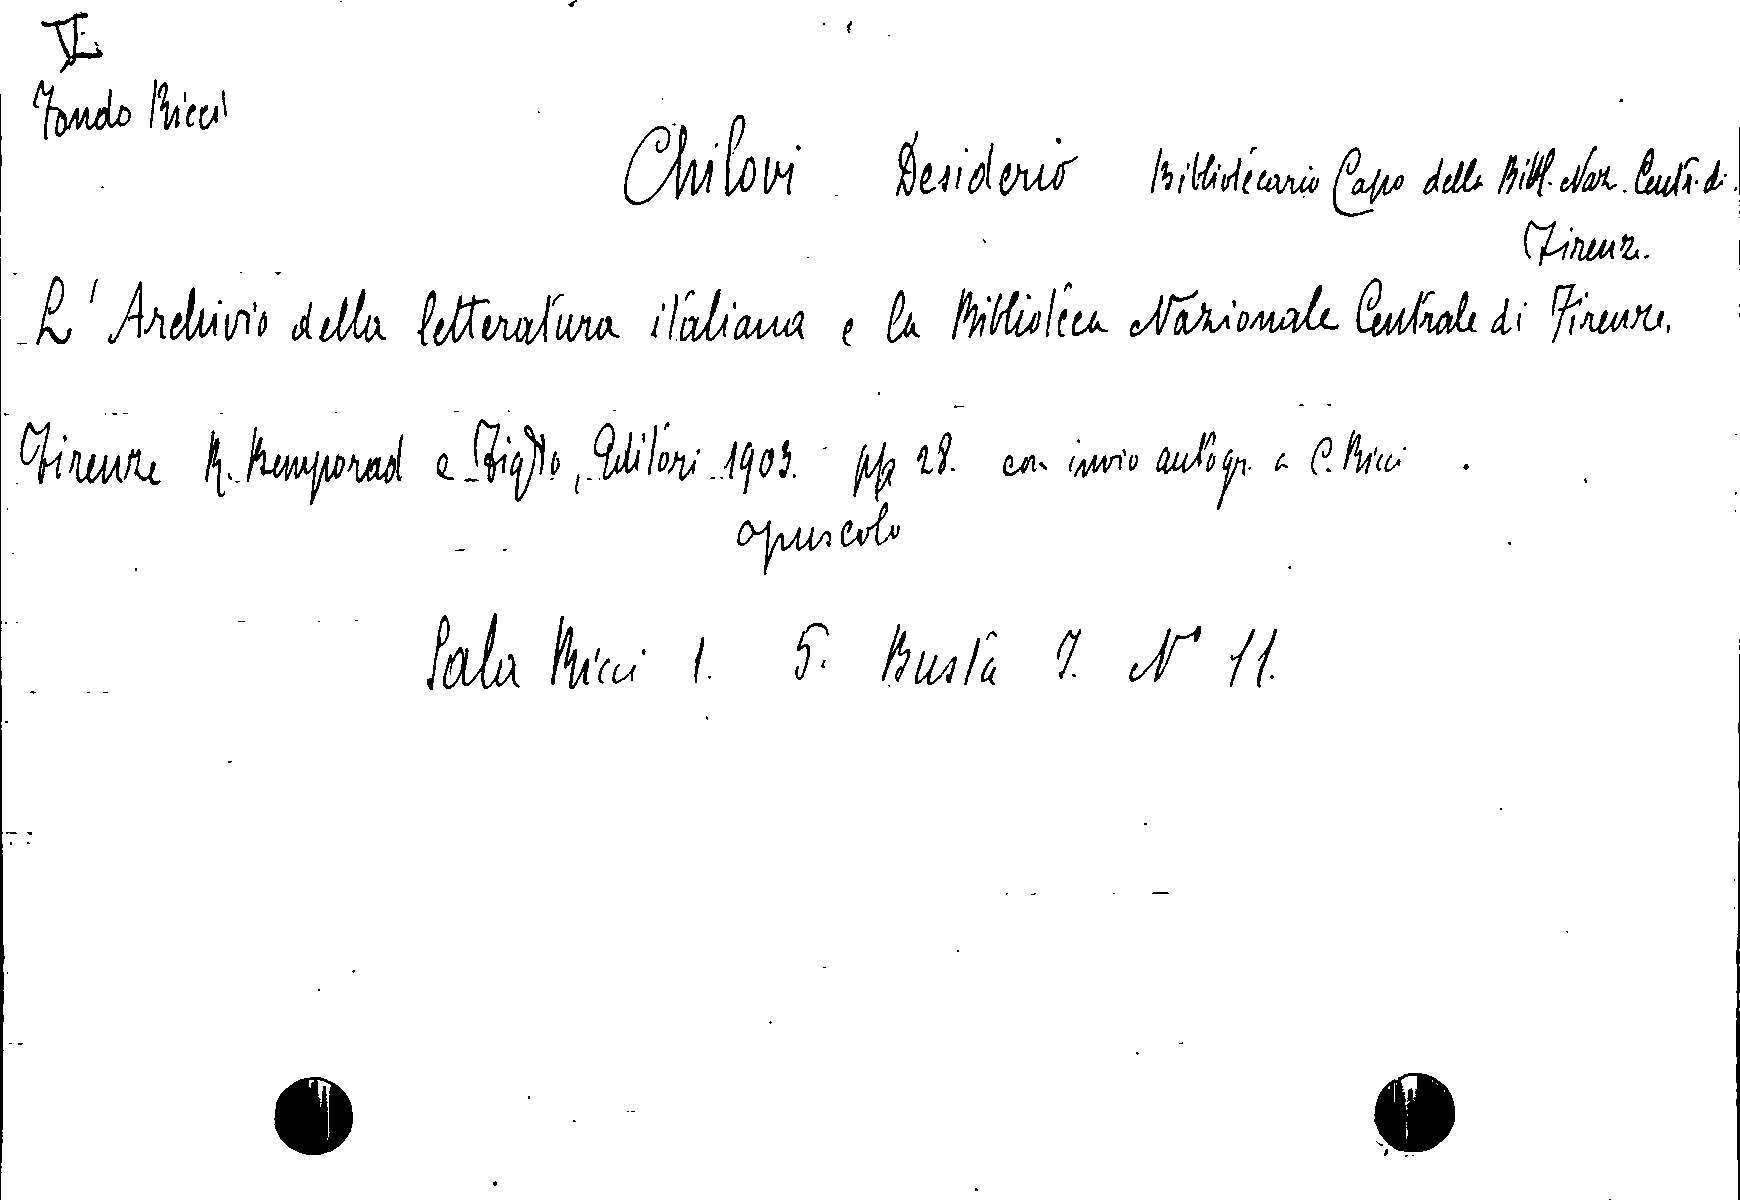 VI
Fondo Ricci
Chilovi Desiderio Bibliotecario Capo della Bibl. Naz. Centr. di
Firenz.
L' Archivio della letteratura italiana e la Biblioteca Nazionale Centrale di Firenze.
Firenze R. Bemporad e Figlio, Editori 1903. pp 28. con invio autogr. a C. Ricci
opuscolo
Sala Ricci 1. 5. Busta I. N° 11.